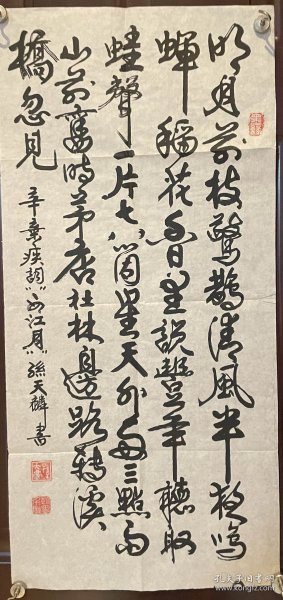 明月前枝驚鵲清風半夜鳴
蟬稻花香里說豐年聽取
蛙聲一片七八箇星天外兩三點雨
山前舊時茅店社林邊路轉溪
橋忽見
辛棄疾詞西江月孫天麟書
孔夫子旧书网